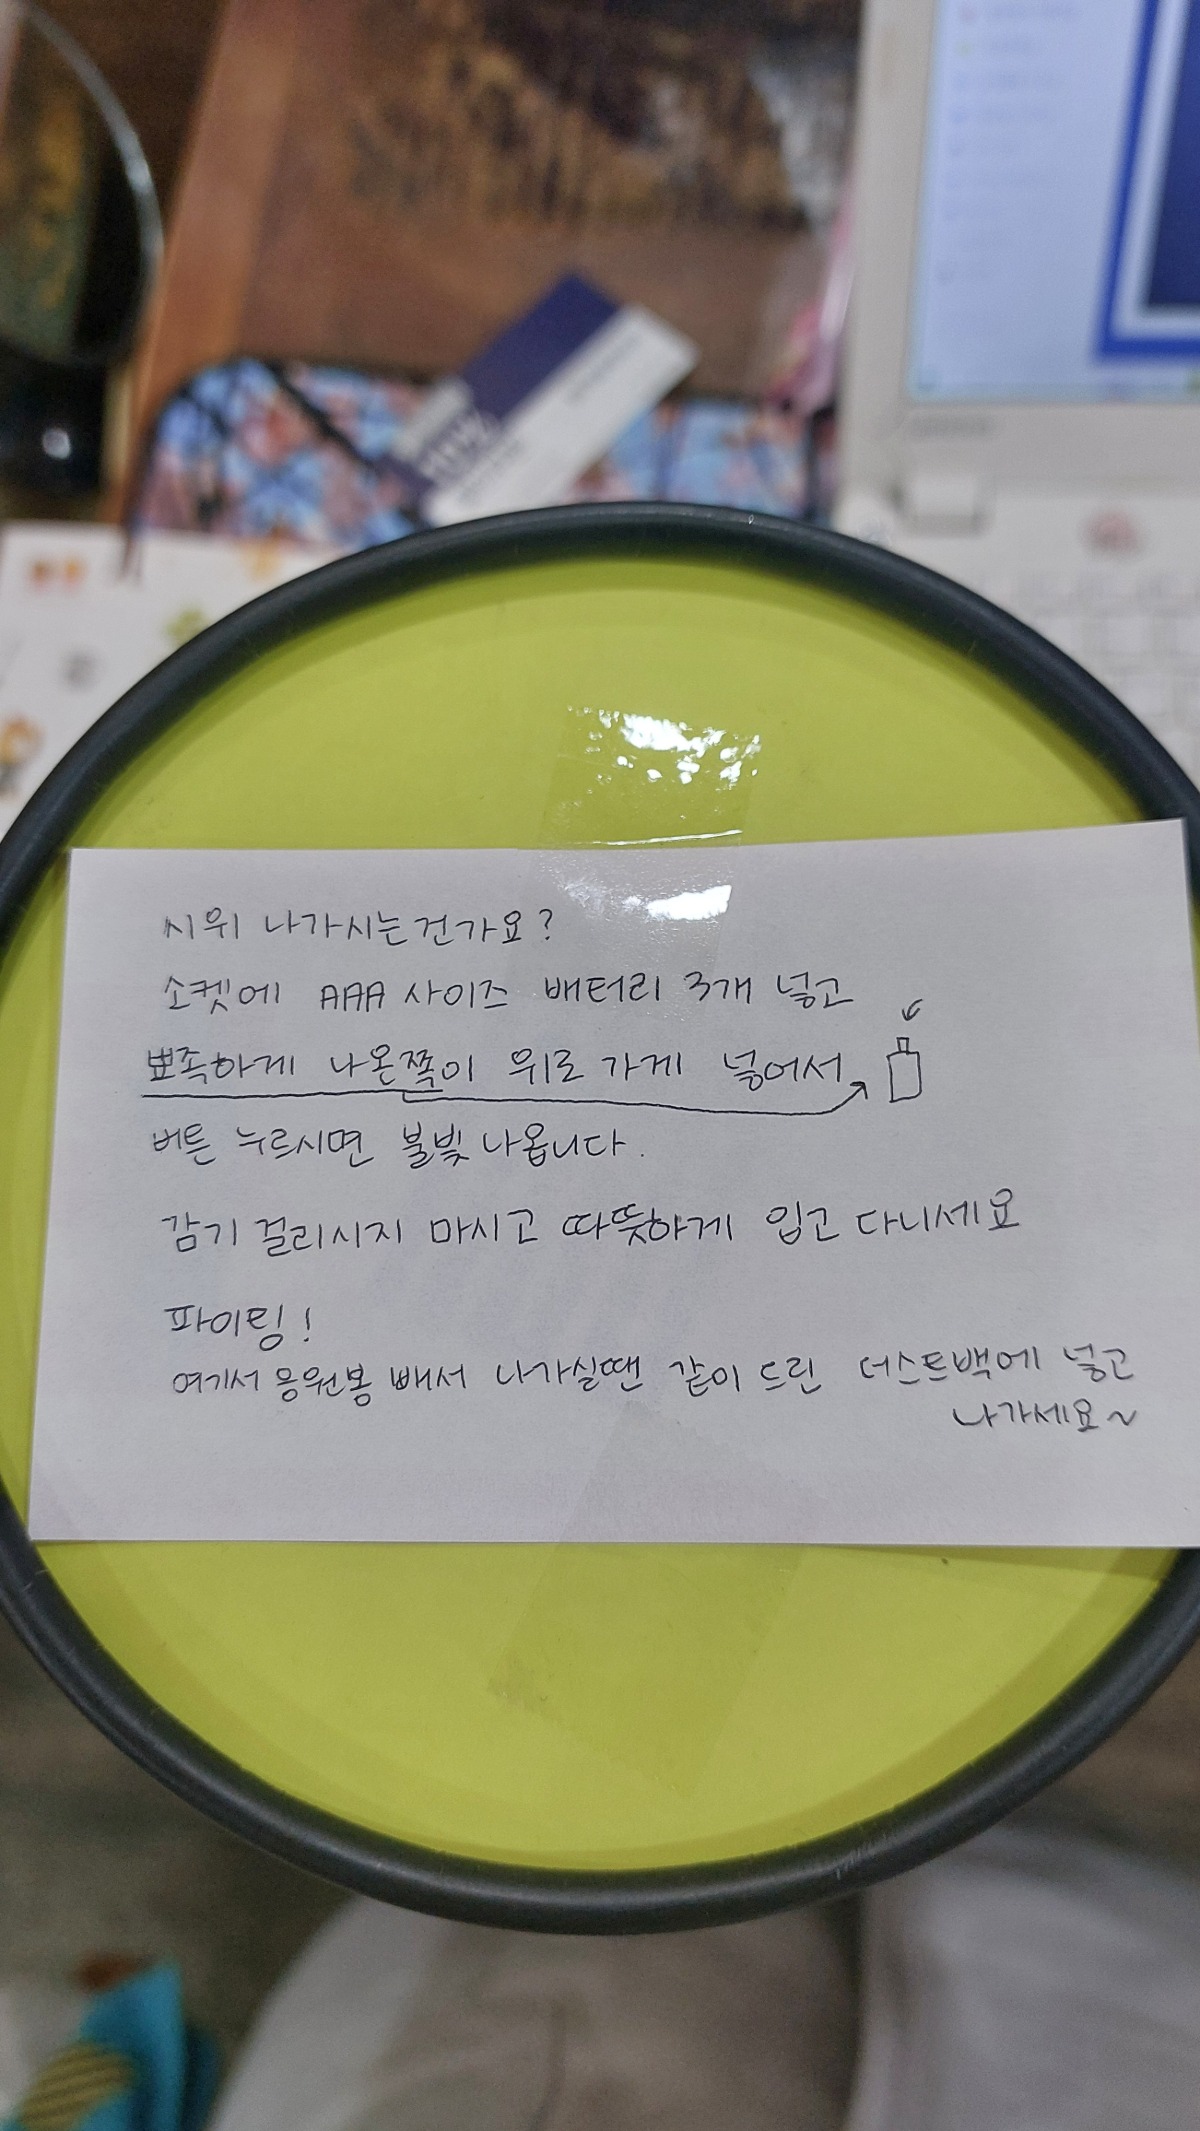 시위 나가시는건가요?
소켓에 AAA 사이즈 배터리 3개 넣고
뾰족하게 나온쪽이 위로 가게 넣어서
버튼 누르시면 불빛 나옵니다.
감기 걸리시지 마시고 따뜻하게 입고 다니세요
파이팅!
여기서 응원봉 빼서 나가실땐 같이 드린 더스트백에 넣고
나가세요~